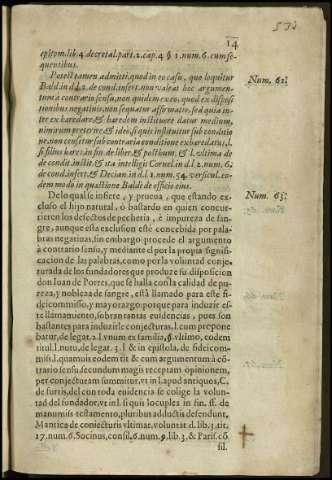 14
epitom. lib. 4. decretal. part. 2. cap. 4. § 1. num. 6. cum se-
quentibus.
Potest tamen admitti, quod in eo casu, quo loquitur
Bald. in d. l. 2. de cond. insert. non valeat hoc argumen-
tum à contrario sensu, non quidem ex eo, quod ex disposi
tionibus negatiuis, non sequatur affirmatio, sed quia in-
ter exhæredare, & hæredem instituere datur medium,
nimirum præterire, & ideò si quis instituitur sub conditio
ne, non censetur sub contraria conditione exhæredatus, l.
si filius hæres in fin. de liber. & posthum. & l. vltima de
de condit. instit. & ita intelligit Cornel. in d. l. 2. num. 6.
de cond. insert. & Decian. in d. l. 1. num. 54. versicul. eo-
dem modo in quæstione Baldi de officio eius.
Num. 62.
De lo qual se infiere, y prueua, que estando ex-
cluso el hijo natural, ò bastardo en quien concur-
rieron los defectos de pecheria, è impureza de san-
gre, aunque esta exclusion esté concebida por pala-
bras negatiuas, sin embargo procede el argumento
à contrario sensu, y mediante el por la propia signifi-
cacion de las palabras, como por la voluntad conje-
turada de los fundadores que produze su disposicion
don Iuan de Porres, que se halla con sta calidad de pu-
reza, y nobleza de sangre, està llamado para este fi-
deicommisso, y mayorazgo: porque para induzir es-
te llamamiento, sobran tantas euidencias, pues son
bastantes para induzirle conjecturas, l. cum propone
batur, de legat. 2. l. vnum ex familia, §. vltimo, eodem
titul. l. nuto, de legat. 3. l. & in epistola, de fideicom-
miss. l. quamuis eodem tit. & cum argumentum à cõ-
trario sensu secundum magis receptam opinionem,
per conjecturam summitur, vt in l. apud antiquos, C.
de furtis, del con toda euidencia se colige la volun-
tad del fundador, vt in l. si quis locuples in fin. ff. de
manumiss. testamento, pluribus adductis defendunt,
Mantica de coniecturis vltimar. voluntat. d. lib. 3. tit.
17. num. 6. Socinus, consil. 6. num. 9. lib. 3. & Paris. cõ
sil.
Num. 63.